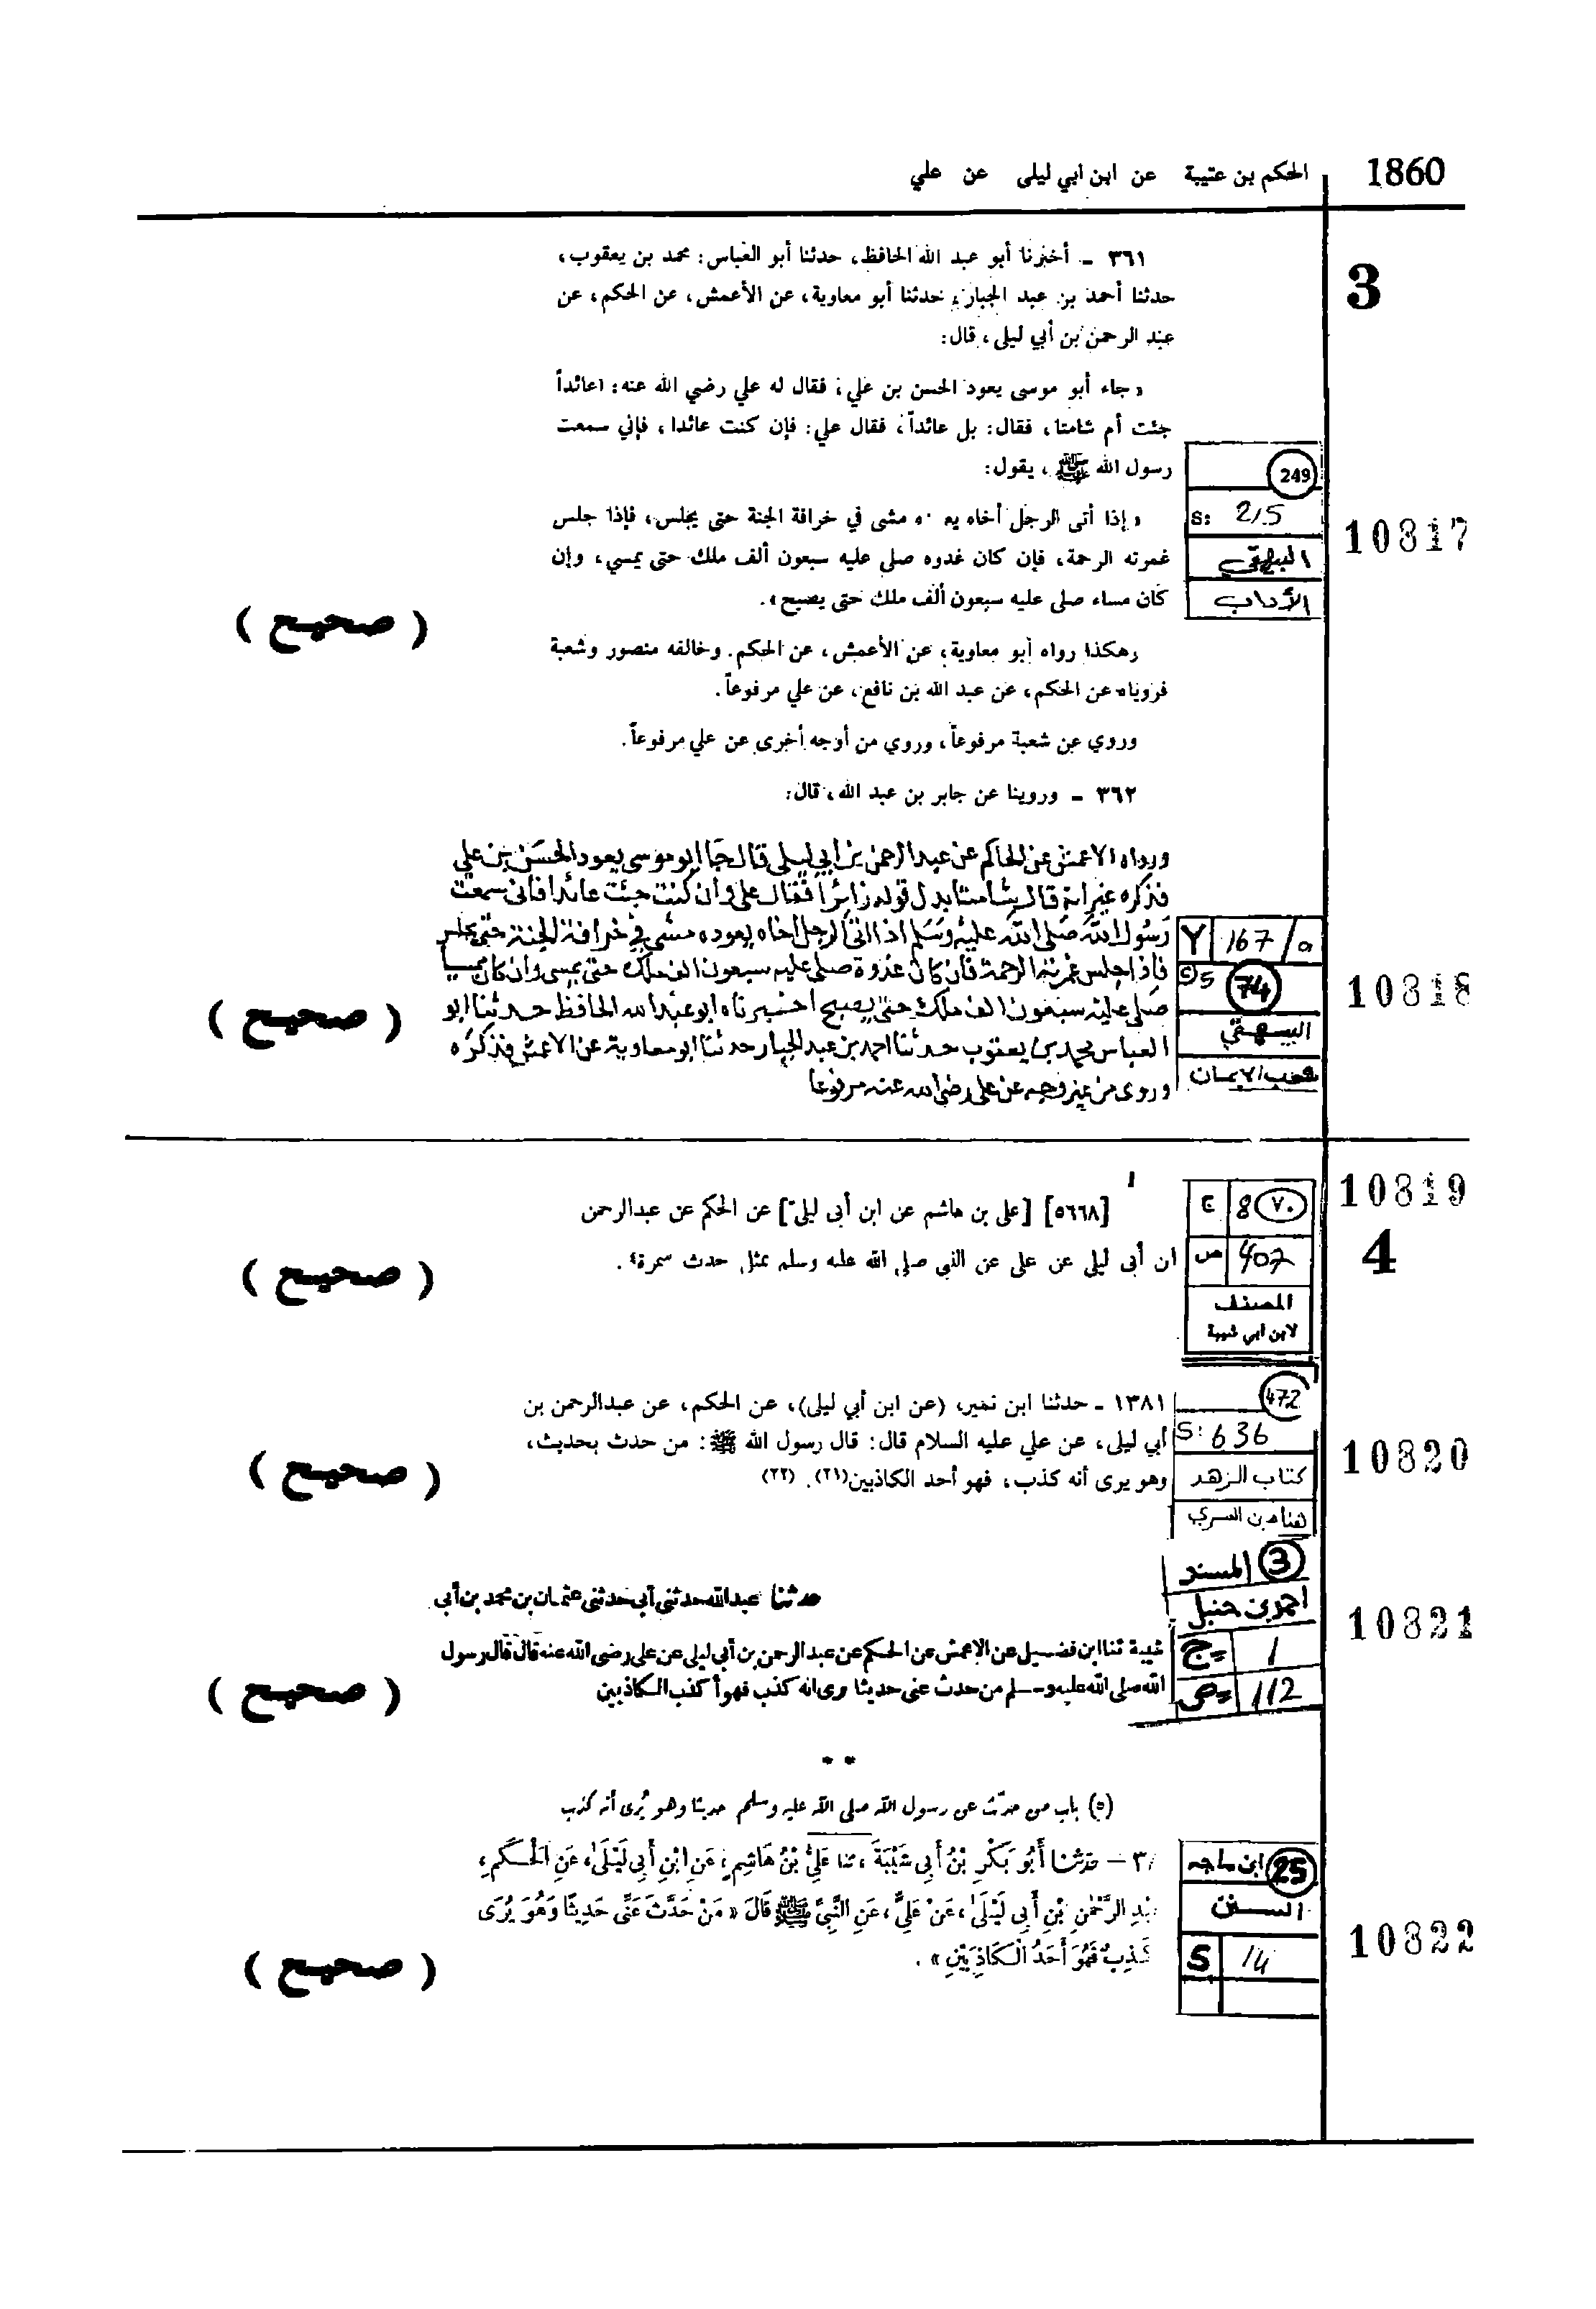 1860
الحكم بن عتيبة عن ابن ابي ليلى عن علي
3
٣٦١ - أخبرنا أبو عبد الله الحافظ، حدثنا أبو العباس: محمد بن يعقوب،
حدثنا أحمد بن عبد الجبار، حدثنا أبو معاوية، عن الأعمش، عن الحكم، عن
عبد الرحمن بن أبي ليلى، قال:
«جاء أبو موسى يعود الحسن بن علي، فقال له علي رضي الله عنه: أعائداً
جئت أم شامتا، فقال: بل عائداً، فقال علي: فإن كنت عائدا، فإني سمعت
رسول الله ﷺ، يقول:
«إذا أتى الرجل أخاه يع ه مشى في خرافة الجنة حتى يجلس، فإذا جلس
غمرته الرحمة، فإن كان غدوه صلى عليه سبعون ألف ملك حتى يمسي، وإن
كان مساء صلى عليه سبعون ألف ملك حتى يصبح».
وهكذا رواه أبو معاوية، عن الأعمش، عن الحكم. وخالفه منصور وشعبة
فروياه عن الحكم، عن عبد الله بن نافع، عن علي مرفوعاً.
وروي عن شعبة مرفوعاً، وروي من أوجه أخرى عن علي مرفوعاً.
٣٦٢ - وروينا عن جابر بن عبد الله، قال:
249
S: 215
البيهقي
الأداب
10817
( صحيح )
ورواه الاعمش عن الحاكم عن عبد الرحمن بن ابي ليلى قال جا ابو موسى يعود الحسن بن علي
فذكره غير انه قال شامتا بدل قوله زائرا فقال على وان كنت جئت عائدا فانى سمعت
رسول الله صلى الله عليه وسلم اذا اتى الرجل اخاه يعوده مشى في خرافة الجنة حتى يجلس
فاذا جلس غمرته الرحمة فان كان غدوة صلى عليه سبعون الف ملك حتى يمسى وان كان ممسيا
صلى عليه سبعون الف ملك حتى يصبح اخبرناه ابو عبد الله الحافظ حدثنا ابو
العباس محمد بن يعقوب حدثنا احمد بن عبد الجبار حدثنا ابو معاوية عن الاعمش فذكره
وروى من غير وجه عن على رضى الله عنه مرفوعا
167/a
74
البيهقي
شعب الايمان
10818
( صحيح )
10819
4
[٥٦٦٨] [على بن هاشم عن ابن أبى ليلى] عن الحكم عن عبدالرحمن
ان أبى ليلى عن على عن النبى صلى الله عله وسلم بمثل حدث سمرة.
ج 8 ٧٠
ص 407
المصنف
لابن ابي شيبة
( صحيح )
١٣٨١ - حدثنا ابن نمير، (عن ابن أبي ليلى)، عن الحكم، عن عبدالرحمن بن
أبي ليلى، عن علي عليه السلام قال: قال رسول الله ﷺ: من حدث بحديث،
وهو يرى أنه كذب، فهو أحد الكاذبين(٢١). (٢٢)
472
S: 636
كتاب الزهد
هناد بن السري
10820
( صحيح )
حدثنا عبد الله حدثني أبي حدثني عثمان بن محمد بن أبي
شيبة ثنا ابن فضيل عن الاعمش عن الحكم عن عبد الرحمن بن أبي ليلى عن على رضى الله عنه قال قال رسول
الله صلى الله عليه وسلم من حدث عنى حديثا يرى انه كذب فهو أكذب الكاذبين
3 المسند
احمد بن حنبل
ج 1
ص 112
10821
( صحيح )
* *
(٥) باب من حدّث عن رسول الله صلى الله عليه وسلم حديثا وهو يُرى أنه كذب
٣ — حدثنا أَبُو بَكْرِ بْنُ أَبِى شَيْبَةَ، ثنا عَلِىُّ بْنُ هَاشِمٍ، عَنِ ابْنِ أَبِى لَيْلَى، عَنِ الْحَكَمِ،
بْدِ الرَّحْمٰنِ بْنِ أَبِى لَيْلَى، عَنْ عَلِىٍّ، عَنِ النَّبِىِّ ﷺ قَالَ «مَنْ حَدَّثَ عَنِّى حَدِيثًا وَهُوَ يُرَى
كَذِبٌ فَهُوَ أَحَدُ الْكَاذِبَيْنِ».
25 ابن ماجه
السنن
S 14
10822
( صحيح )